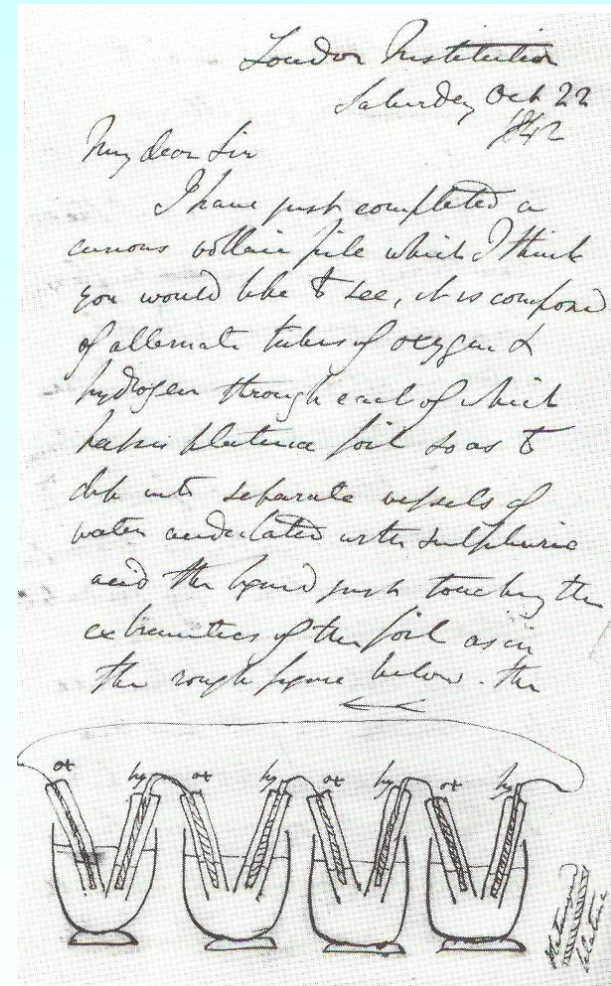 London Institution
Saturday Oct 22
1842
My dear Sir
I have just completed a
curious voltaic pile which I think
you would like to see, it is composed
of alternate tubes of oxygen &
hydrogen through each of which
platina foil so as to
dip into separate vessels of
water acidulated with sulphuric
acid the liquid just touching the
extremities of the foil as in
the rough figure below. the
ox hy ox hy ox hy ox hy
platina